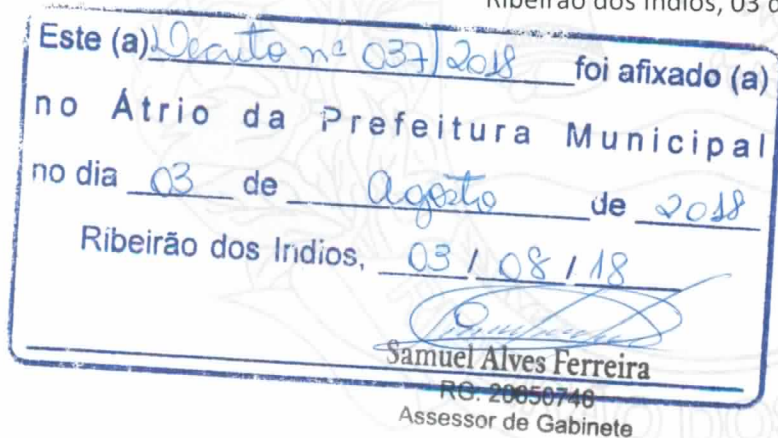 Ribeirão dos Índios, 03 d
Este (a) Decreto nº 037/2018 foi afixado (a)
no Átrio da Prefeitura Municipal
no dia 03 de agosto de 2018
Ribeirão dos Indios, 03 / 08 / 18
Samuel Alves Ferreira
RG: 20650746
Assessor de Gabinete